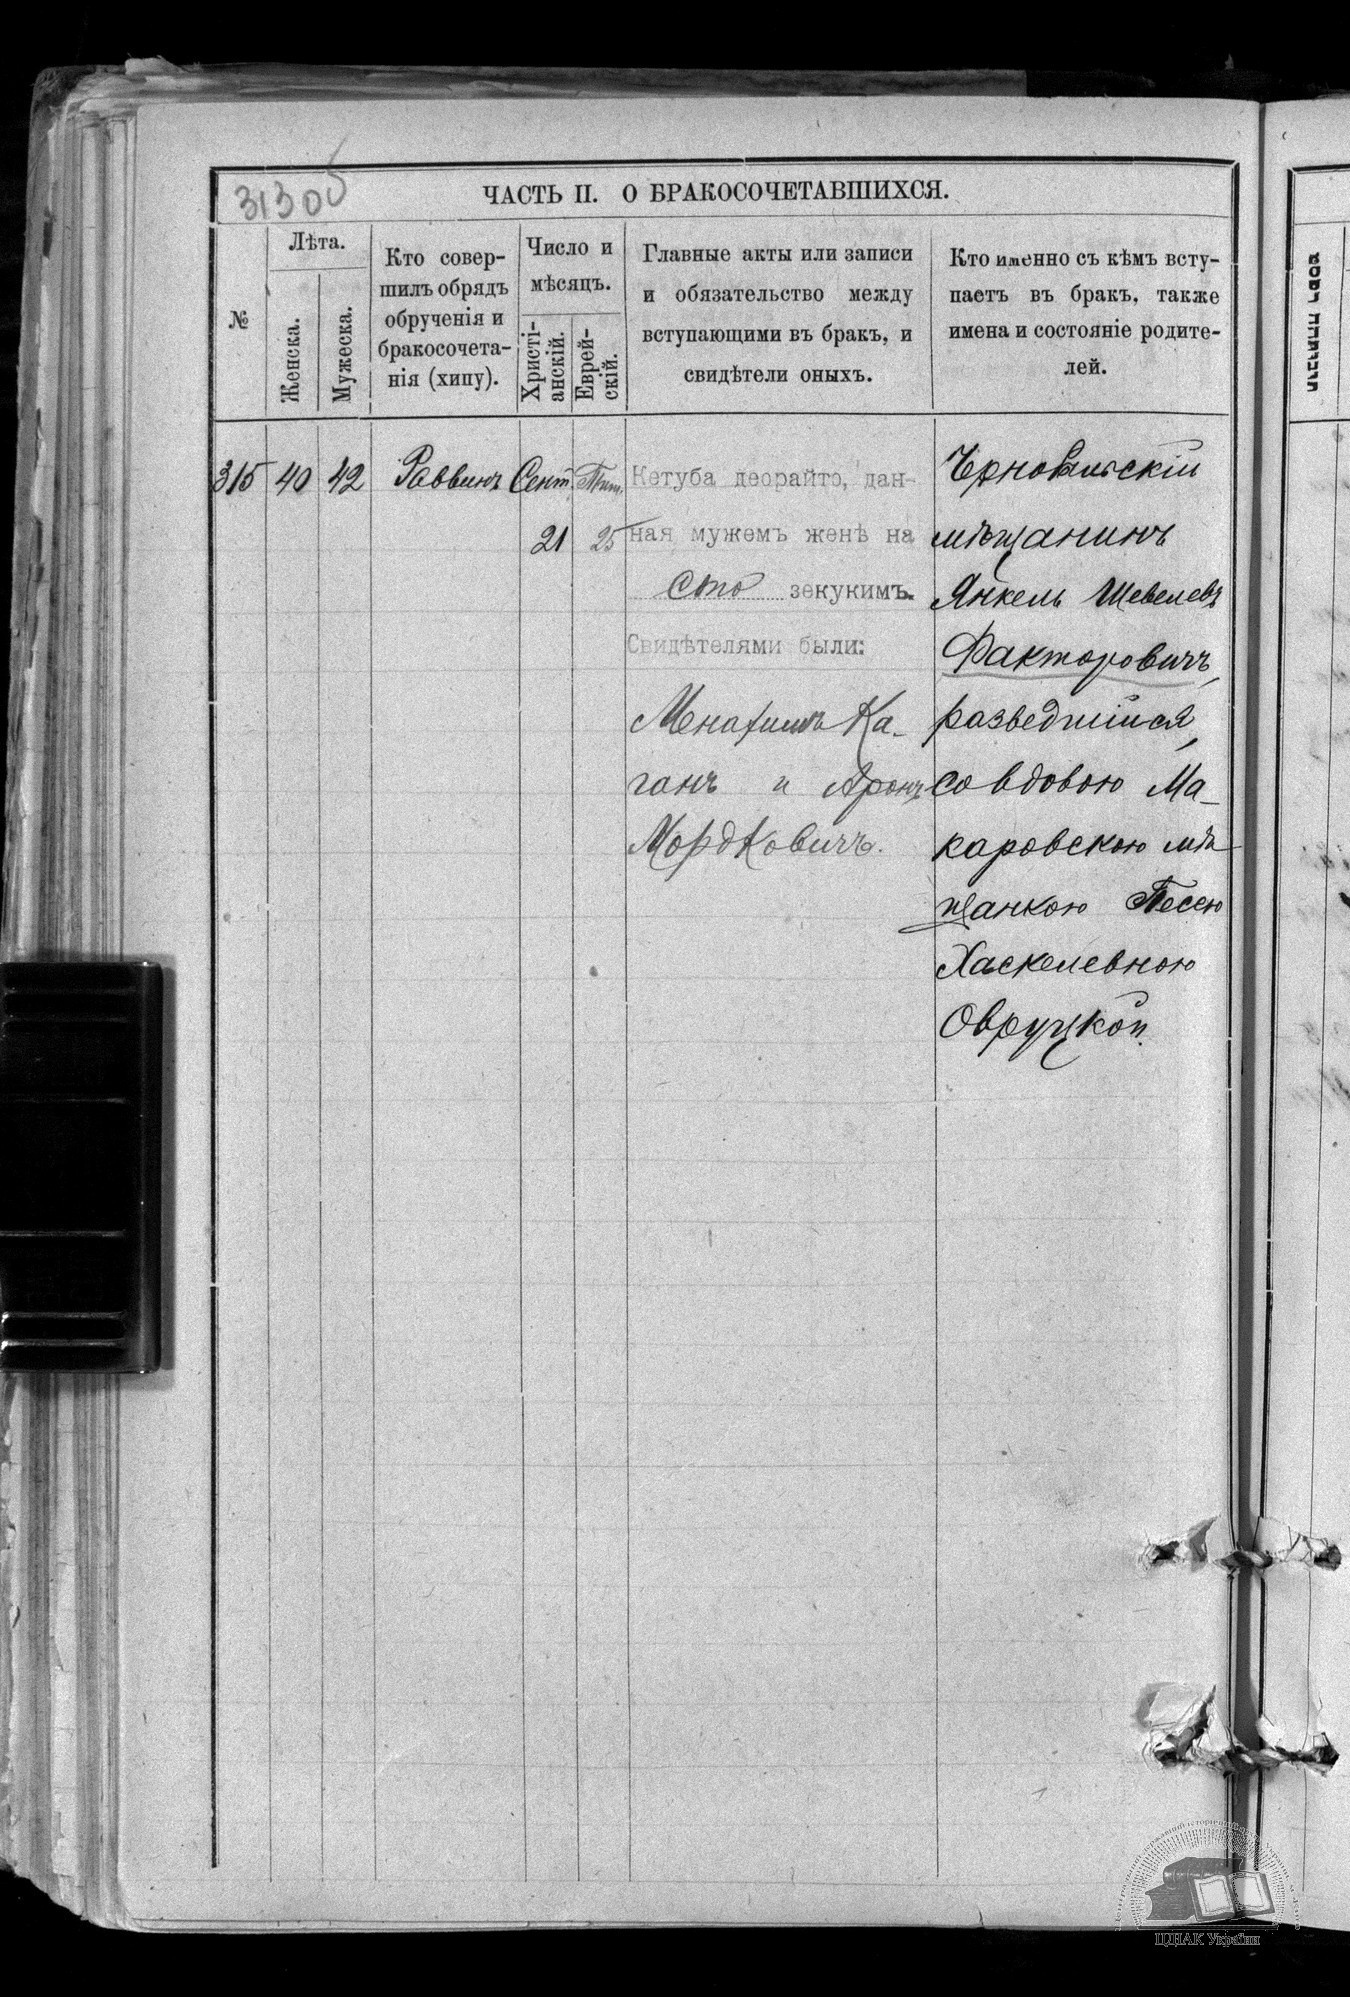 31305
ЧАСТЬ II. О БРАКОСОЧЕТАВШИХСЯ.
№
Лѣта.
Женска.
Мужеска.
Кто совер-
шилъ обрядъ
обрученія и
бракосочета-
нія (хипу).
Число и
мѣсяцъ.
Христі-
анскій.
Еврей-
скій.
Главные акты или записи
и обязательство между
вступающими въ бракъ, и
свидѣтели оныхъ.
Кто именно съ кѣмъ всту-
паетъ въ бракъ, также
имена и состояніе родите-
лей.
315
40
42
Раввинъ
Сент.
21
Тиш.
25
Кетуба деорайто, дан-
ная мужемъ женѣ на
сто зекукимъ.
Свидѣтелями были:
Менахимъ Ка-
ганъ и Аронъ
Мордковичъ.
Чернобыльскій
мѣщанинъ
Янкель Шевелевъ
Факторовичъ,
разведшійся,
со вдовою Ма-
каровскою мѣ
щанкою Песею
Хаскелевною
Овруцкой.
ЦДІАК України